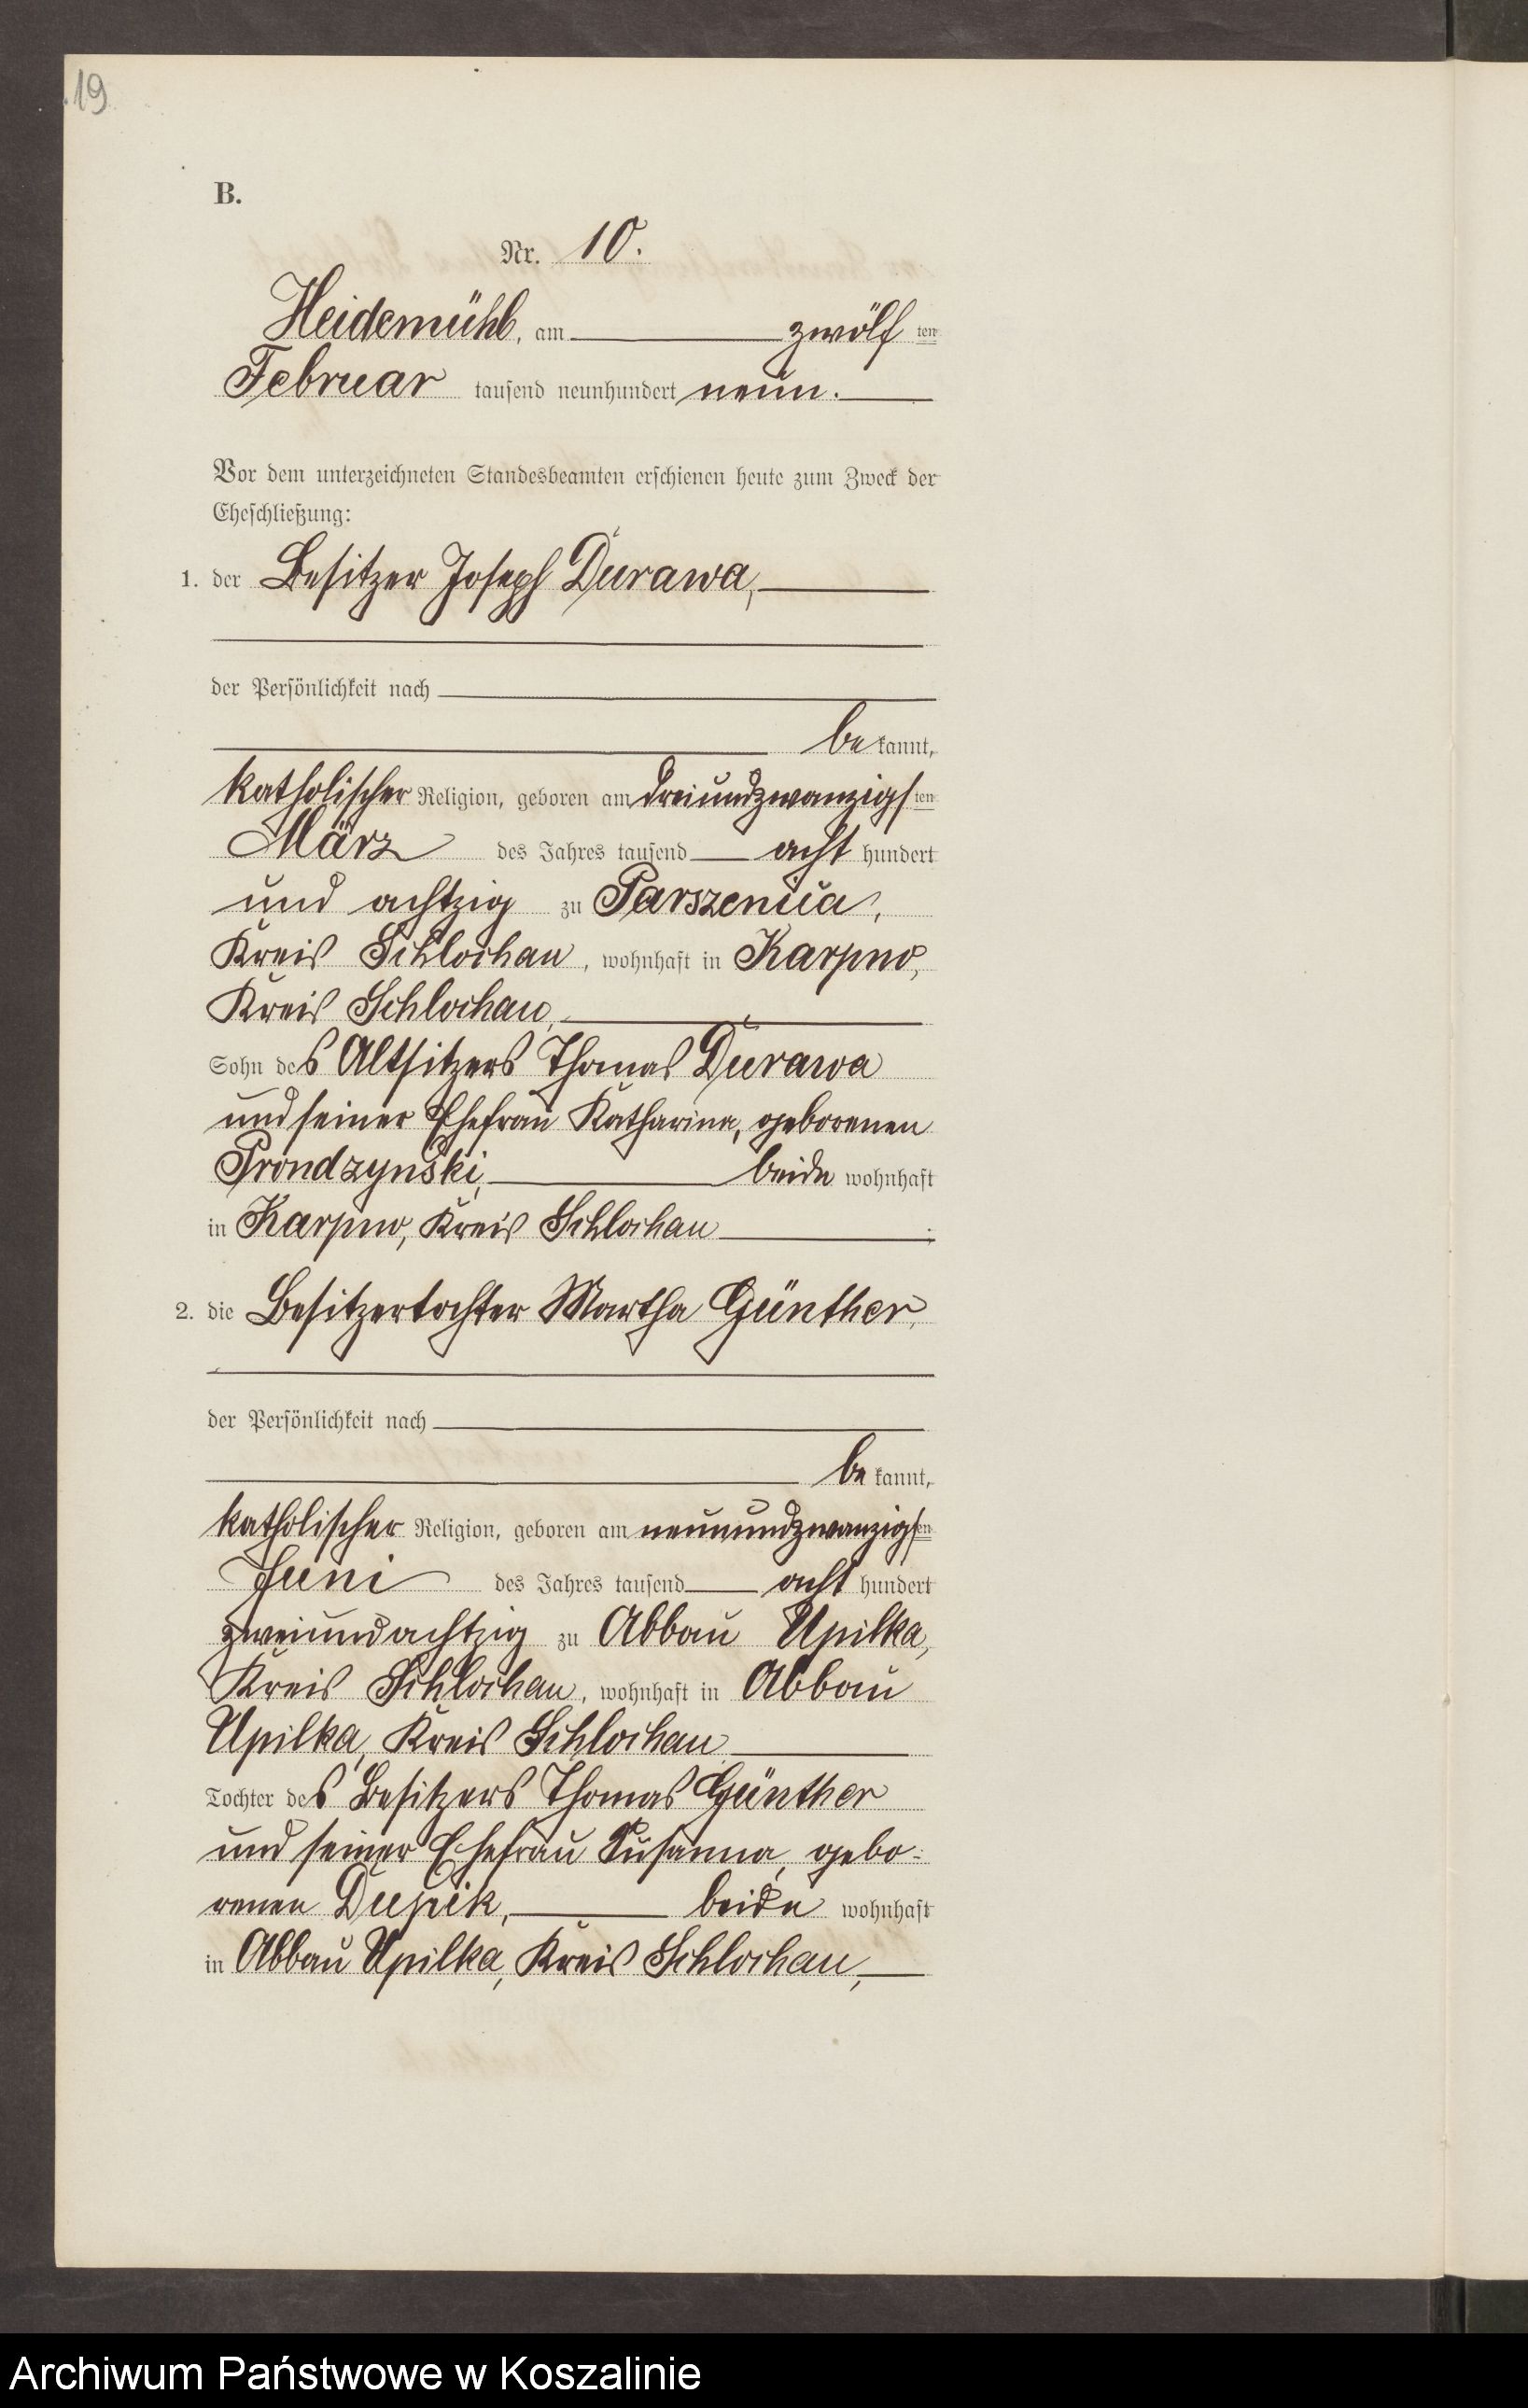 19
B.
Nr. 10.
Heidemühl, am zwölf ten
Februar tausend neunhundert neun.
Vor dem unterzeichneten Standesbeamten erschienen heute zum Zweck der
Eheschließung:
1. der Besitzer Joseph Durawa,
der Persönlichkeit nach
be kannt,
katholischer Religion, geboren am dreiundzwanzigsten
März des Jahres tausend acht hundert
und achtzig zu Parszenica,
Kreis Schlochau, wohnhaft in Karpno,
Kreis Schlochau,
Sohn des Altsitzers Thomas Durawa
und seiner Ehefrau Katharina, geborenen
Prondzynski, beide wohnhaft
in Karpno, Kreis Schlochau;
2. die Besitzertochter Martha Günther,
der Persönlichkeit nach
be kannt,
katholischer Religion, geboren am neunundzwanzigsten
Juni des Jahres tausend acht hundert
zweiundachtzig zu Abbau Upilka,
Kreis Schlochau, wohnhaft in Abbau
Upilka, Kreis Schlochau
Tochter des Besitzers Thomas Günther
und seiner Ehefrau Susanna, gebo-
renen beide wohnhaft
in Abbau Upilka, Kreis Schlochau,
Archiwum Państwowe w Koszalinie